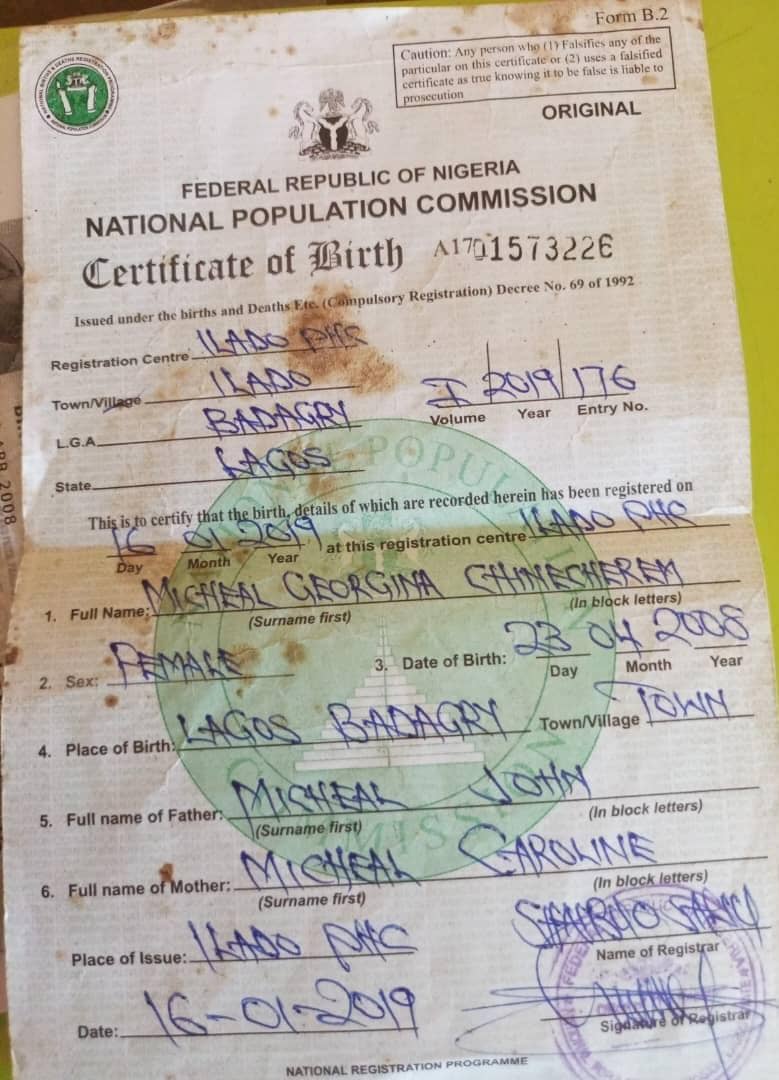 Form B.2
Caution: Any person who (1) Falsifies any of the
particular on this certificate or (2) uses a falsified
certificate as true knowing it to be false is liable to
prosecution
ORIGINAL
FEDERAL REPUBLIC OF NIGERIA
NATIONAL POPULATION COMMISSION
Certificate of Birth A1701573226
Issued under the births and Deaths Etc. (Compulsory Registration) Decree No. 69 of 1992
Registration Centre ILADO PHC
Town/Village ILADO
I 2019 176
Volume Year Entry No.
L.G.A. BADAGRY
State LAGOS
This is to certify that the birth, details of which are recorded herein has been registered on
16 01 2019 at this registration centre ILADO PHC
Day Month Year
1. Full Name: MICHEAL GEORGINA CHINECHEREM
(Surname first) (In block letters)
2. Sex: FEMALE 3. Date of Birth: 23 04 2008
Day Month Year
4. Place of Birth: LAGOS BADAGRY Town/Village TOWN
5. Full name of Father: MICHEAL JOHN
(Surname first) (In block letters)
6. Full name of Mother: MICHEAL CAROLINE
(Surname first) (In block letters)
Place of Issue: ILADO PHC
Name of Registrar
Date: 16-01-2019
Signature of Registrar
NATIONAL REGISTRATION PROGRAMME
2008